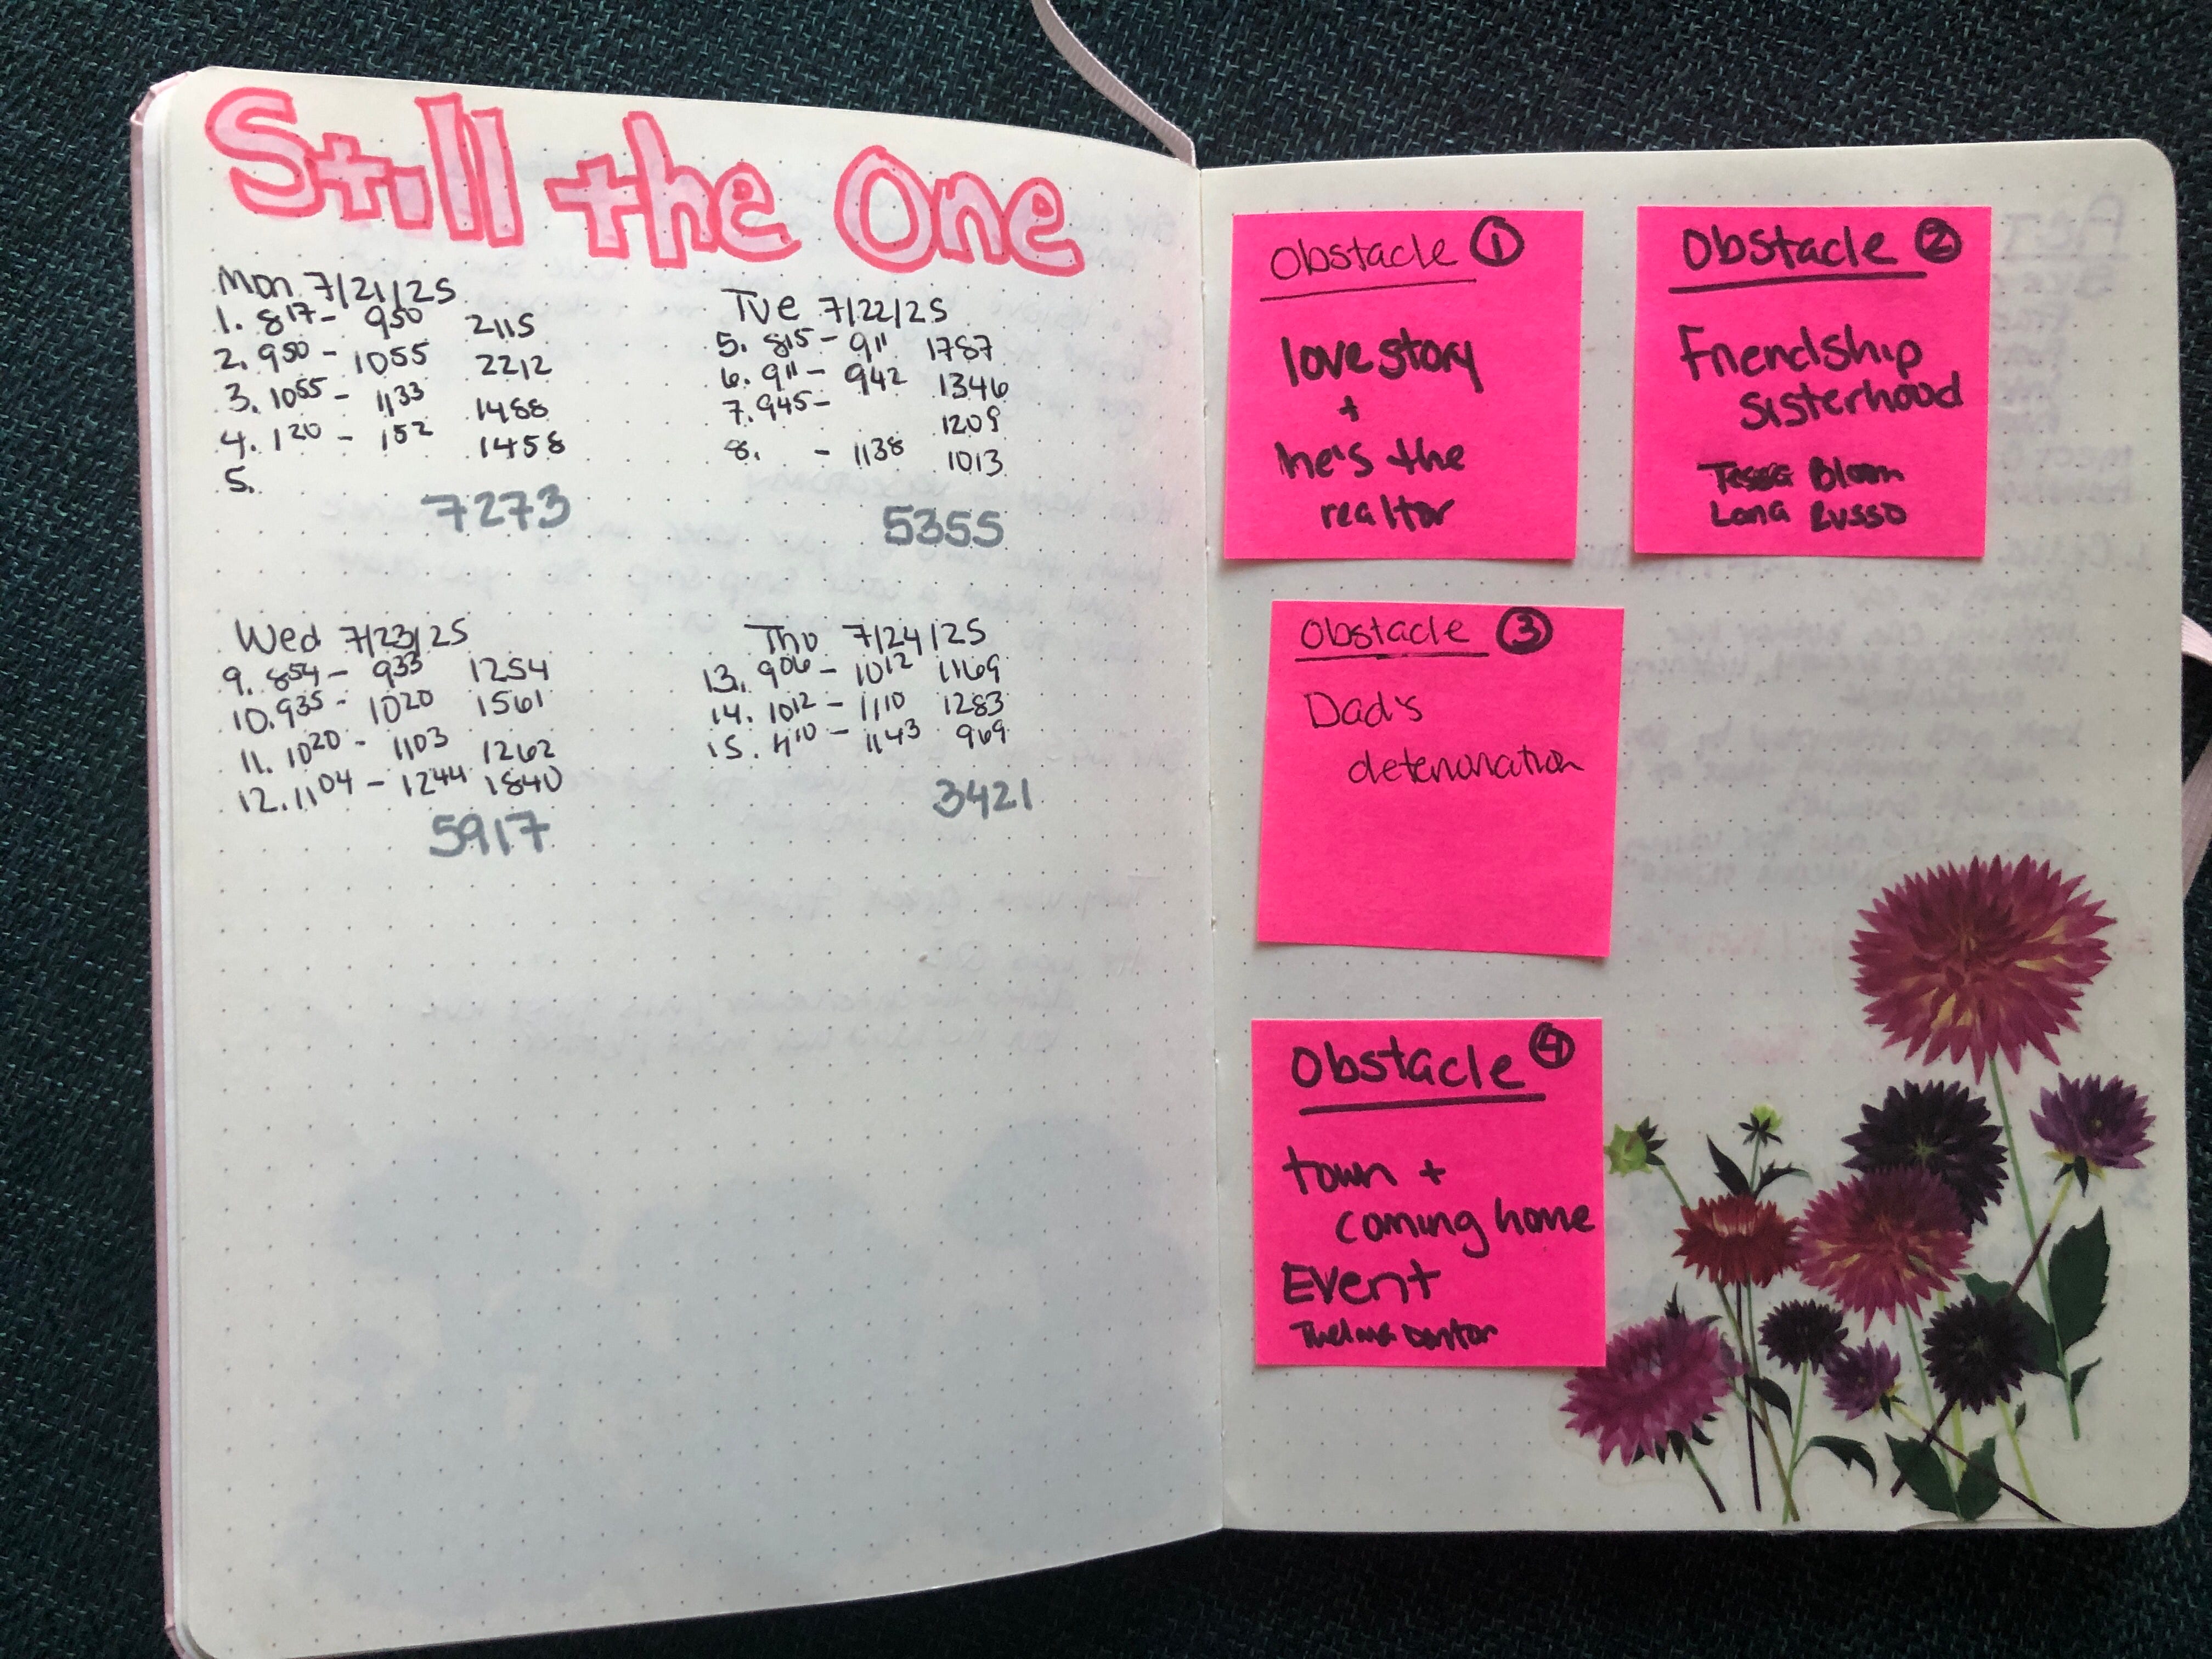 Still the One
Mon 7/21/25
1. 817 - 950 2115
2. 950 - 1055 2212
3. 1055 - 1133 1488
4. 120 - 152 1458
5.
7273
Tue 7/22/25
5. 815 - 911 1787
6. 911 - 942 1346
7. 945 - 1209
8. - 1138 1013
5355
Wed 7/23/25
9. 854 - 933 1254
10. 935 - 1020 1561
11. 1020 - 1103 1262
12. 1104 - 1244 1840
5917
Thu 7/24/25
13. 906 - 1012 1169
14. 1012 - 1110 1283
15. 1110 - 1143 969
3421
Obstacle 1
love story
+
he's the
realtor
Obstacle 2
Friendship
sisterhood
Bloom
Lana Russo
Obstacle 3
Dad's
deterioration
Obstacle 4
town +
coming home
Event
Thelma